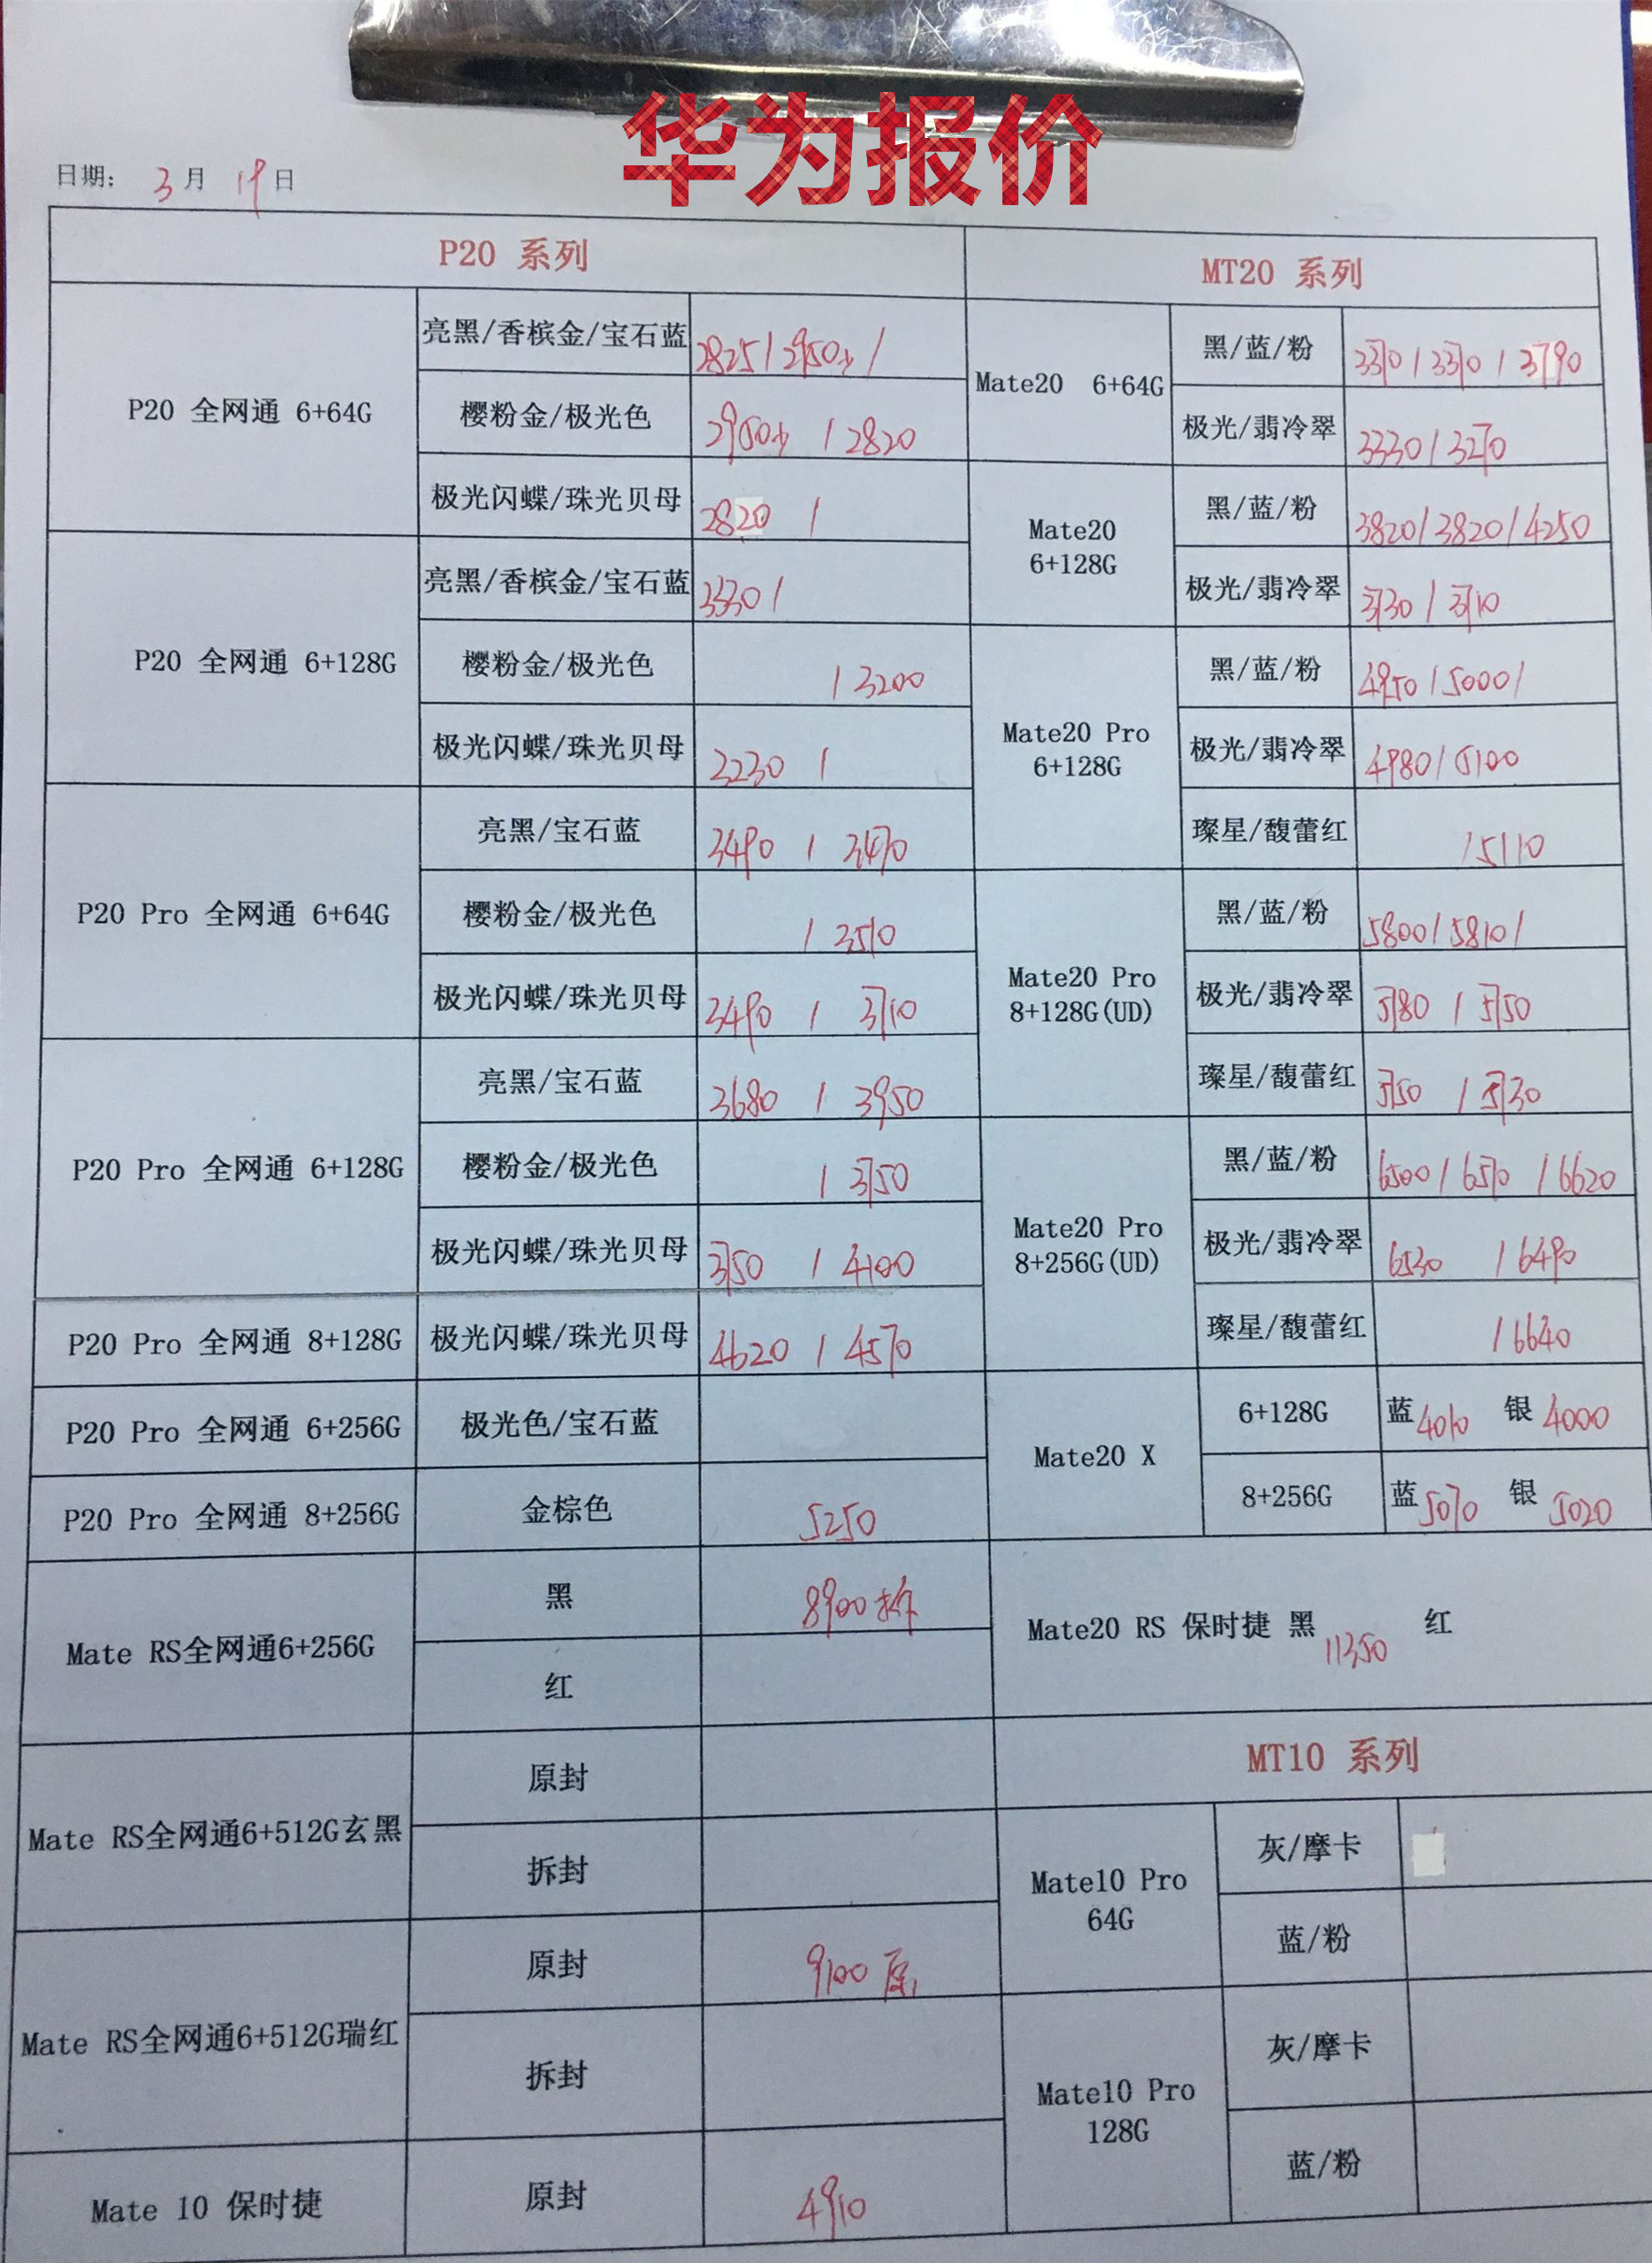 华为报价
日期: 3月 19日
P20 系列
P20 全网通 6+64G
亮黑/香槟金/宝石蓝 2825 / 2950少 /
樱粉金/极光色 2950少 / 2820
极光闪蝶/珠光贝母 2820 /
P20 全网通 6+128G
亮黑/香槟金/宝石蓝 3330 /
樱粉金/极光色 / 3200
极光闪蝶/珠光贝母 3230 /
P20 Pro 全网通 6+64G
亮黑/宝石蓝 3490 / 3470
樱粉金/极光色 / 3510
极光闪蝶/珠光贝母 3490 / 3710
P20 Pro 全网通 6+128G
亮黑/宝石蓝 3680 / 3950
樱粉金/极光色 / 3750
极光闪蝶/珠光贝母 3750 / 4100
P20 Pro 全网通 8+128G 极光闪蝶/珠光贝母 4620 / 4570
P20 Pro 全网通 6+256G 极光色/宝石蓝
P20 Pro 全网通 8+256G 金棕色 5250
Mate RS全网通6+256G
黑 8900拆
红
Mate RS全网通6+512G玄黑
原封
拆封
Mate RS全网通6+512G瑞红
原封 9100原
拆封
Mate 10 保时捷 原封 4910
MT20 系列
Mate20 6+64G
黑/蓝/粉 / / 3790
极光/翡冷翠 3330 / 3270
Mate20
6+128G
黑/蓝/粉 3820 / 3820 / 4250
极光/翡冷翠 3730 / 3710
Mate20 Pro
6+128G
黑/蓝/粉 4950 / 5000 /
极光/翡冷翠 4980 / 5100
璨星/馥蕾红 / 5110
Mate20 Pro
8+128G(UD)
黑/蓝/粉 5800 / 5810 /
极光/翡冷翠 5780 / 5750
璨星/馥蕾红 5750 / 5730
Mate20 Pro
8+256G(UD)
黑/蓝/粉 6500 / 6570 / 6620
极光/翡冷翠 6530 / 6490
璨星/馥蕾红 / 6640
Mate20 X
6+128G 蓝 4010 银 4000
8+256G 蓝 5070 银 5020
Mate20 RS 保时捷 黑 11350 红
MT10 系列
Mate10 Pro
64G
灰/摩卡
蓝/粉
Mate10 Pro
128G
灰/摩卡
蓝/粉